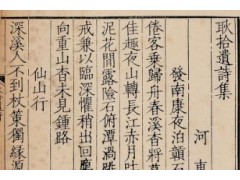 耿拾遺詩集
河東
發南康夜泊灨石
倦客乘歸舟春溪杳將
佳趣夜山轉長江赤月吐
泥花閒露險石俯潭渦
戒兼以臨深懼稍出回
向重山杳未見鍾路
仙山行
深溪人不到杖策獨緣源